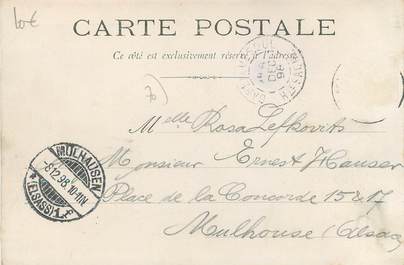 10€
CARTE POSTALE
Ce côté est exclusivement réservé à l'adresse
Melle Rosa Lefkovits
Monsieur Ernest Hauser
Place de la Concorde 15 & 17
Mulhouse (Alsace)
MÜLHAUSEN
-8.12.98.10-11N.
(ELSASS) 1.
DEC
98